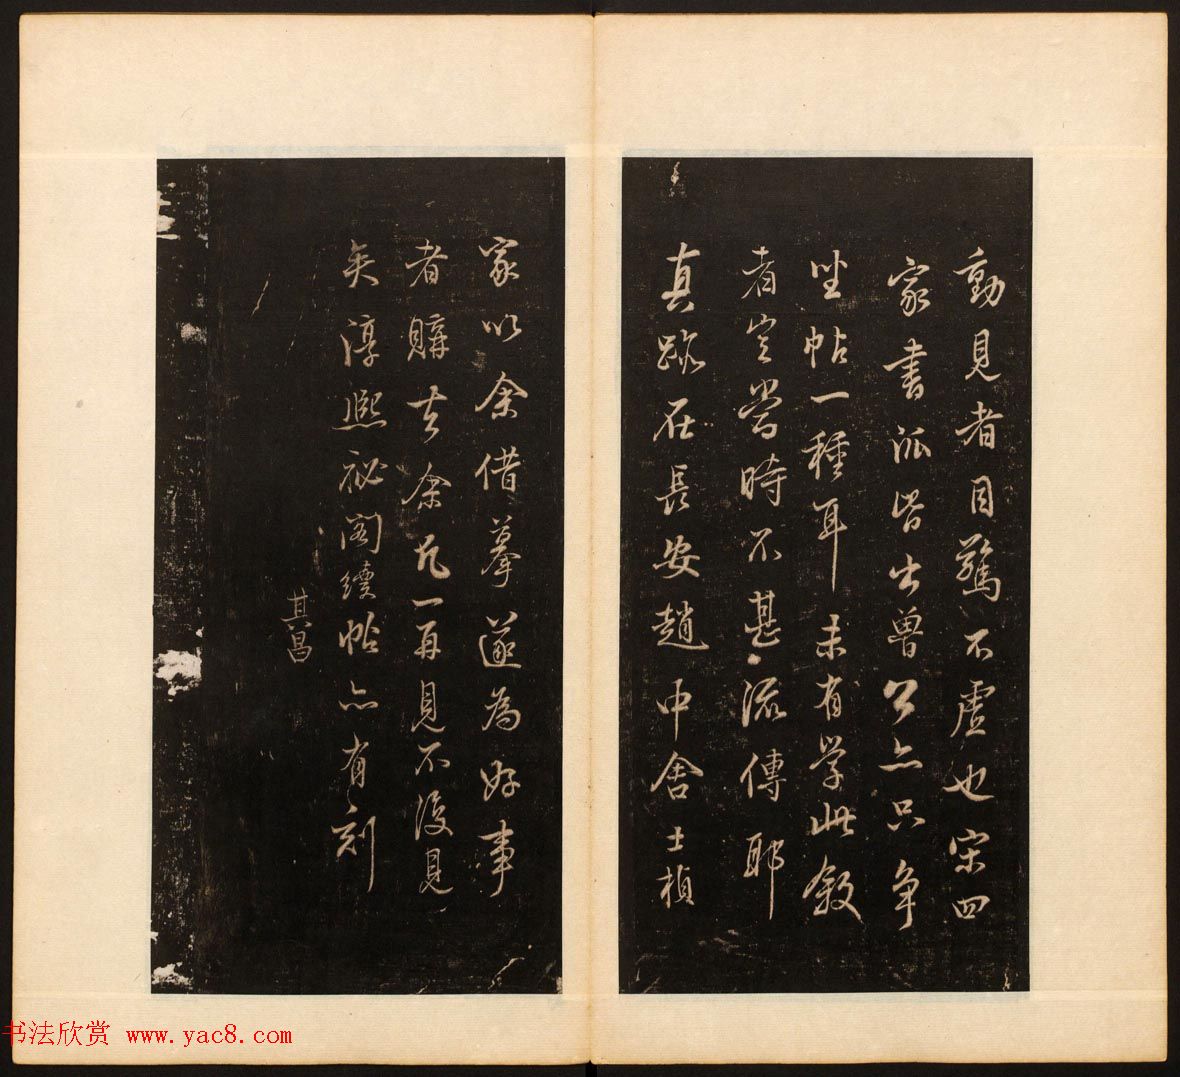 動見者目驚不虛也宋四
家書派皆出魯公亦只爭
坐帖一種耳未有學此敘
者豈當時不甚流傳耶
真跡在長安趙中舍士楨
家以余借摹遂為好事
者購去余凡一再見不復見
矣淳熙祕閣續帖亦有刻
其昌
书法欣赏 www.yac8.com